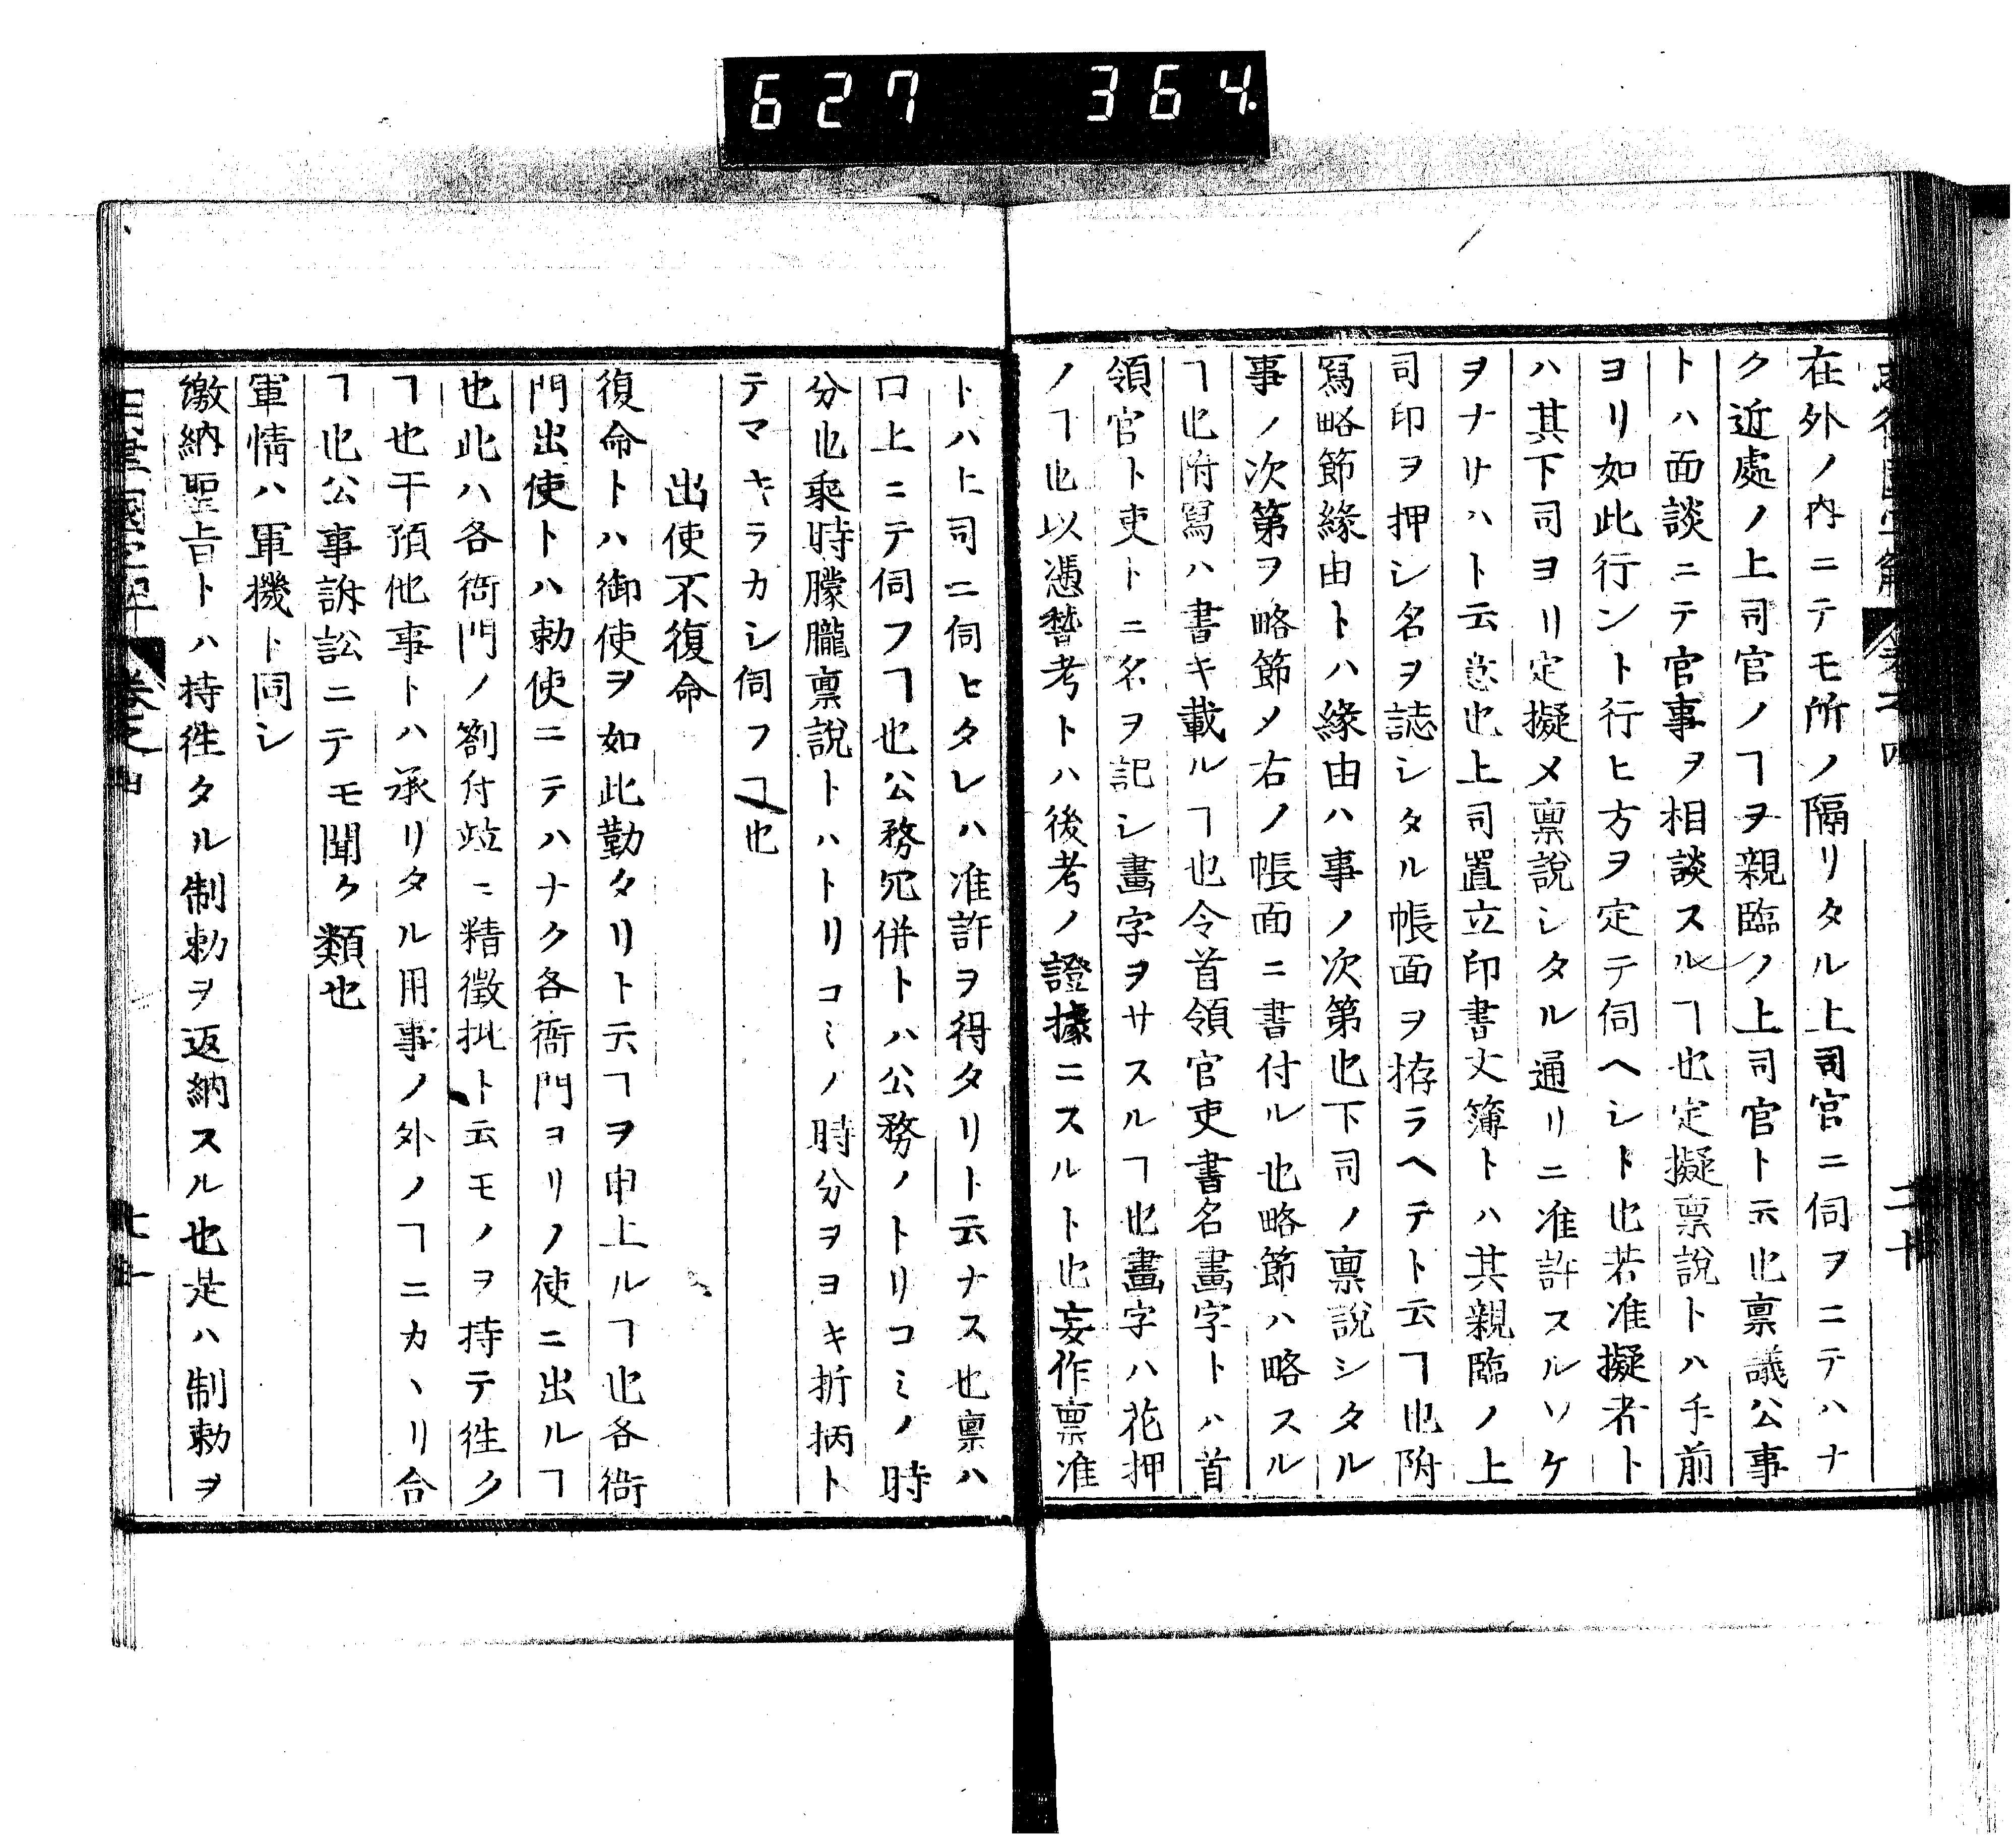 627 364
在外ノ内ニテモ所ノ隔リタル上司官ニ伺ヲニテハナ
ク近處ノ上司官ノヿヲ親臨ノ上司官ト云也稟議公事
トハ面談ニテ官事ヲ相談スルヿ也定擬稟說トハ手前
ヨリ如此行ント行ヒ方ヲ定テ伺ヘシト也若准擬者ト
ハ其下司ヨリ定擬メ稟說シタル通リニ准許スルソケ
ヲナサハト云意也上司置立印書文簿トハ其親臨ノ上
司印ヲ押シ名ヲ誌シタル帳面ヲ拵ラヘテト云ヿ也附
寫略節緣由トハ緣由ハ事ノ次第也下司ノ稟說シタル
事ノ次第ヲ略節メ右ノ帳面ニ書付ル也略節ハ略スル
ヿ也附寫ハ書キ載ルヿ也令首領官吏書名畫字トハ首
領官ト吏トニ名ヲ記シ畫字ヲサスルヿ也畫字ハ花押
ノヿ也以憑稽考トハ後考ノ證據ニスルト也妄作稟准
トハ上司ニ伺ヒタレハ准許ヲ得タリト云ナス也稟ハ
口上ニテ伺フヿ也公務冗併トハ公務ノトリコミノ時
分也乘時朦朧稟說トハトリコミノ時分ヲヨキ折柄ト
テマキラカシ伺フヿ也
出使不復命
復命トハ御使ヲ如此勤タリト云ヿヲ申上ルヿ也各衙
門出使トハ勅使ニテハナク各衙門ヨリノ使ニ出ルヿ
也此ハ各衙門ノ劄付竝ニ精徵批ト云モノヲ持テ徃ク
ヿ也干預他事トハ承リタル用事ノ外ノヿニカヽリ合
ヿ也公事訴訟ニテモ聞ク類也
軍情ハ軍機ト同シ
繳納聖旨トハ持徃タル制勅ヲ返納スル也是ハ制勅ヲ